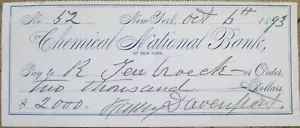 No 52 New York, Oct 6th 1893
Chemical National Bank,
OF NEW YORK.
Pay to R Ten broeck or Order,
two thousand Dollars
$2000. Henry Davenport.